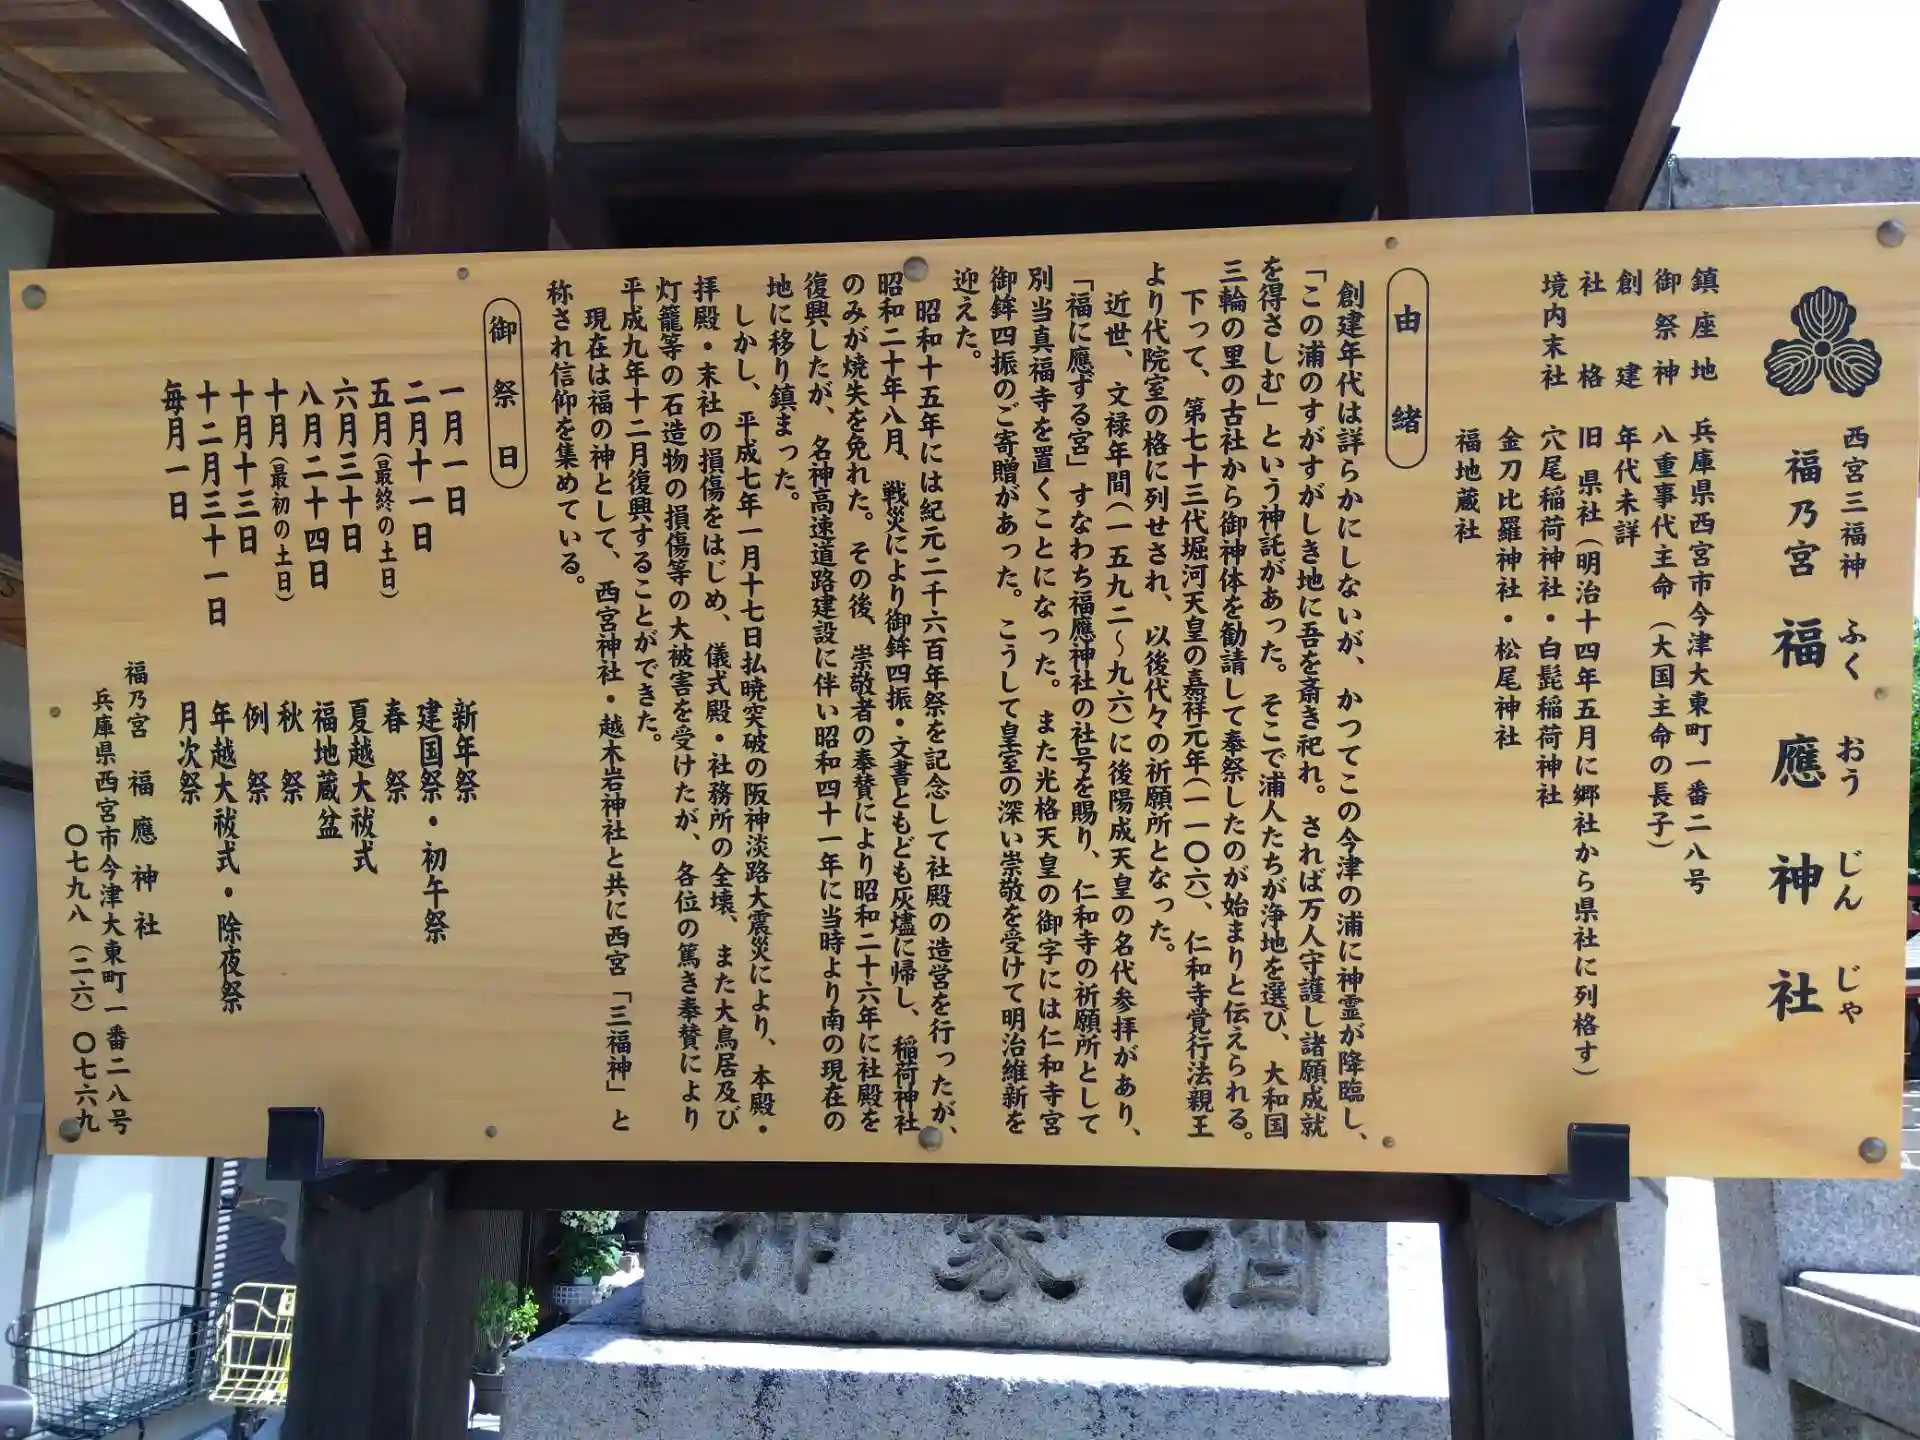 西宮三福神
福乃宮 福應神社
ふく おう じん じゃ
鎮座地 兵庫県西宮市今津大東町一番二八号
御祭神 八重事代主命（大国主命の長子）
創建 年代未詳
社格 旧 県社（明治十四年五月に郷社から県社に列格す）
境内末社 穴尾稲荷神社・白髭稲荷神社
金刀比羅神社・松尾神社
福地蔵社
由緒
創建年代は詳らかにしないが、かつてこの今津の浦に神霊が降臨し、
「この浦のすがすがしき地に吾を斎き祀れ。されば万人守護し諸願成就
を得さしむ」という神託があった。そこで浦人たちが浄地を選び、大和国
三輪の里の古社から御神体を勧請して奉祭したのが始まりと伝えられる。
下って、第七十三代堀河天皇の嘉祥元年（一一〇六）、仁和寺覚行法親王
より代院室の格に列せされ、以後代々の祈願所となった。
近世、文禄年間（一五九二〜九六）に後陽成天皇の名代参拝があり、
「福に應ずる宮」すなわち福應神社の社号を賜り、仁和寺の祈願所として
別当真福寺を置くことになった。また光格天皇の御字には仁和寺宮
御鉾四振のご寄贈があった。こうして皇室の深い崇敬を受けて明治維新を
迎えた。
昭和十五年には紀元二千六百年祭を記念して社殿の造営を行ったが、
昭和二十年八月、戦災により御鉾四振・文書ともども灰燼に帰し、稲荷神社
のみが焼失を免れた。その後、崇敬者の奉賛により昭和二十六年に社殿を
復興したが、名神高速道路建設に伴い昭和四十一年に当時より南の現在の
地に移り鎮まった。
しかし、平成七年一月十七日払暁突破の阪神淡路大震災により、本殿・
拝殿・末社の損傷をはじめ、儀式殿・社務所の全壊、また大鳥居及び
灯籠等の石造物の損傷等の大被害を受けたが、各位の篤き奉賛により
平成九年十二月復興することができた。
現在は福の神として、西宮神社・越木岩神社と共に西宮「三福神」と
称され信仰を集めている。
御祭日
一月一日 新年祭
二月十一日 建国祭・初午祭
五月（最終の土日） 春祭
六月三十日 夏越大祓式
八月二十四日 福地蔵盆
十月（最初の土日） 秋祭
十月十三日 例祭
十二月三十一日 年越大祓式・除夜祭
毎月一日 月次祭
福乃宮 福應神社
兵庫県西宮市今津大東町一番二八号
〇七九八（二六）〇七六九